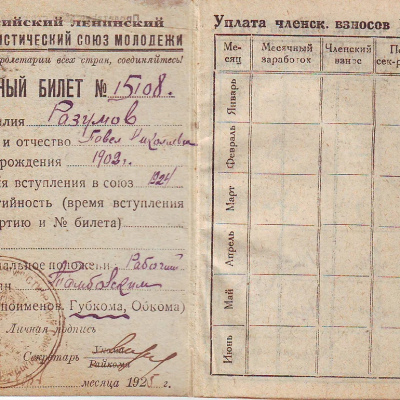 сийский Ленинский
истический Союз Молодежи
ролетарии всех стран, соединяйтесь!
НЫЙ БИЛЕТ № 15108.
алия Разумов
и отчество Павел Николаевич
рождения 1902 г.
я вступления в союз 1924
тийность (время вступления
артию и № билета)
альное положени Рабочий
ан Тамбовским
поименов. Губкома, Обкома)
Личная подпись
Секретарь Укома
Райкома
месяца 1925 г.
Уплата членск. взносов
Ме-
сяц
Месячный
заработок
Членский
взнос
По
сек-р
Январь
Февраль
Март
Апрель
Май
Июнь